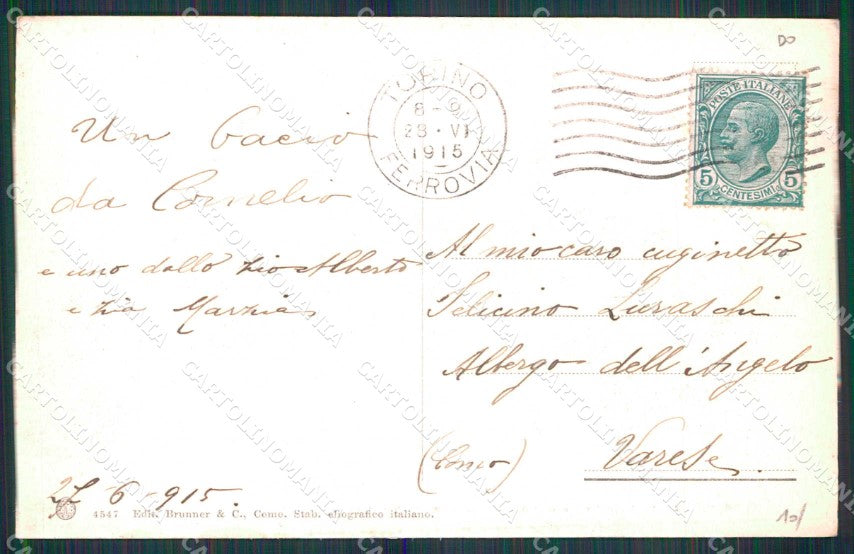 DO
TORINO
8 - 9
23 · VI
1915
FERROVIA
POSTE·ITALIANE
5 5
CENTESIMI
Un bacio
da Cornelio
e uno dallo zio Alberto
e zia
Al mio caro cuginetto
Felicino Luraschi
Albergo dell'Angelo
(Como) Varese
27 6 915.
4547 Edit. Brunner & C., Como. Stab. eliografico italiano.
10/
CARTOLINOMANIA